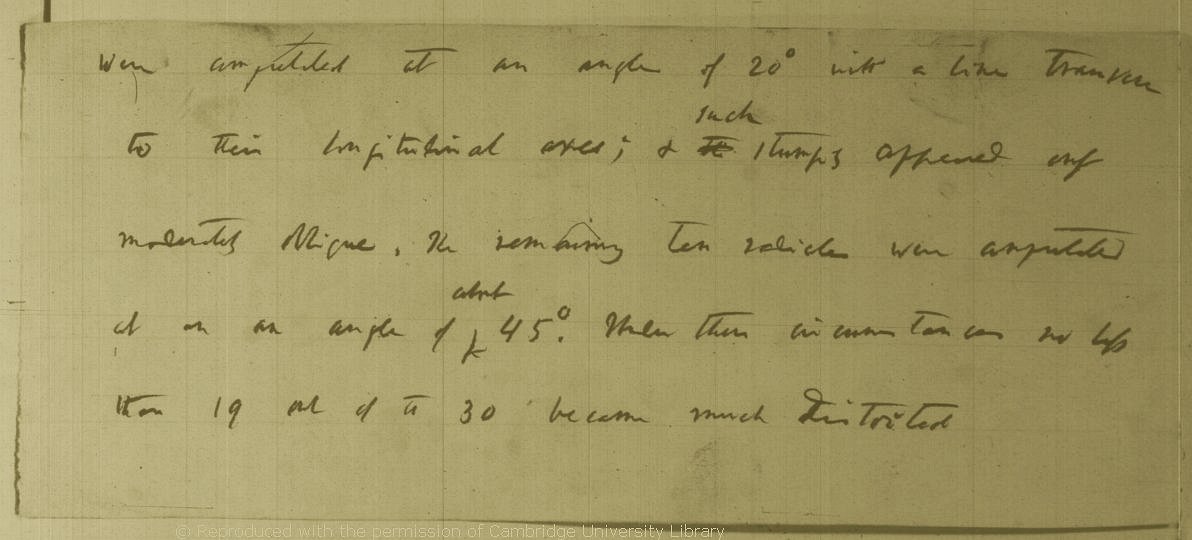 were amputated at an angle of 20° with a line transverse
such
to their longitudinal axes; & the stumps appeared only
moderately oblique. The remaining ten radicles were amputated
about
at an an angle of 45°. Under these circumstances no less
than 19 out of the 30 became much distorted
© Reproduced with the permission of Cambridge University Library